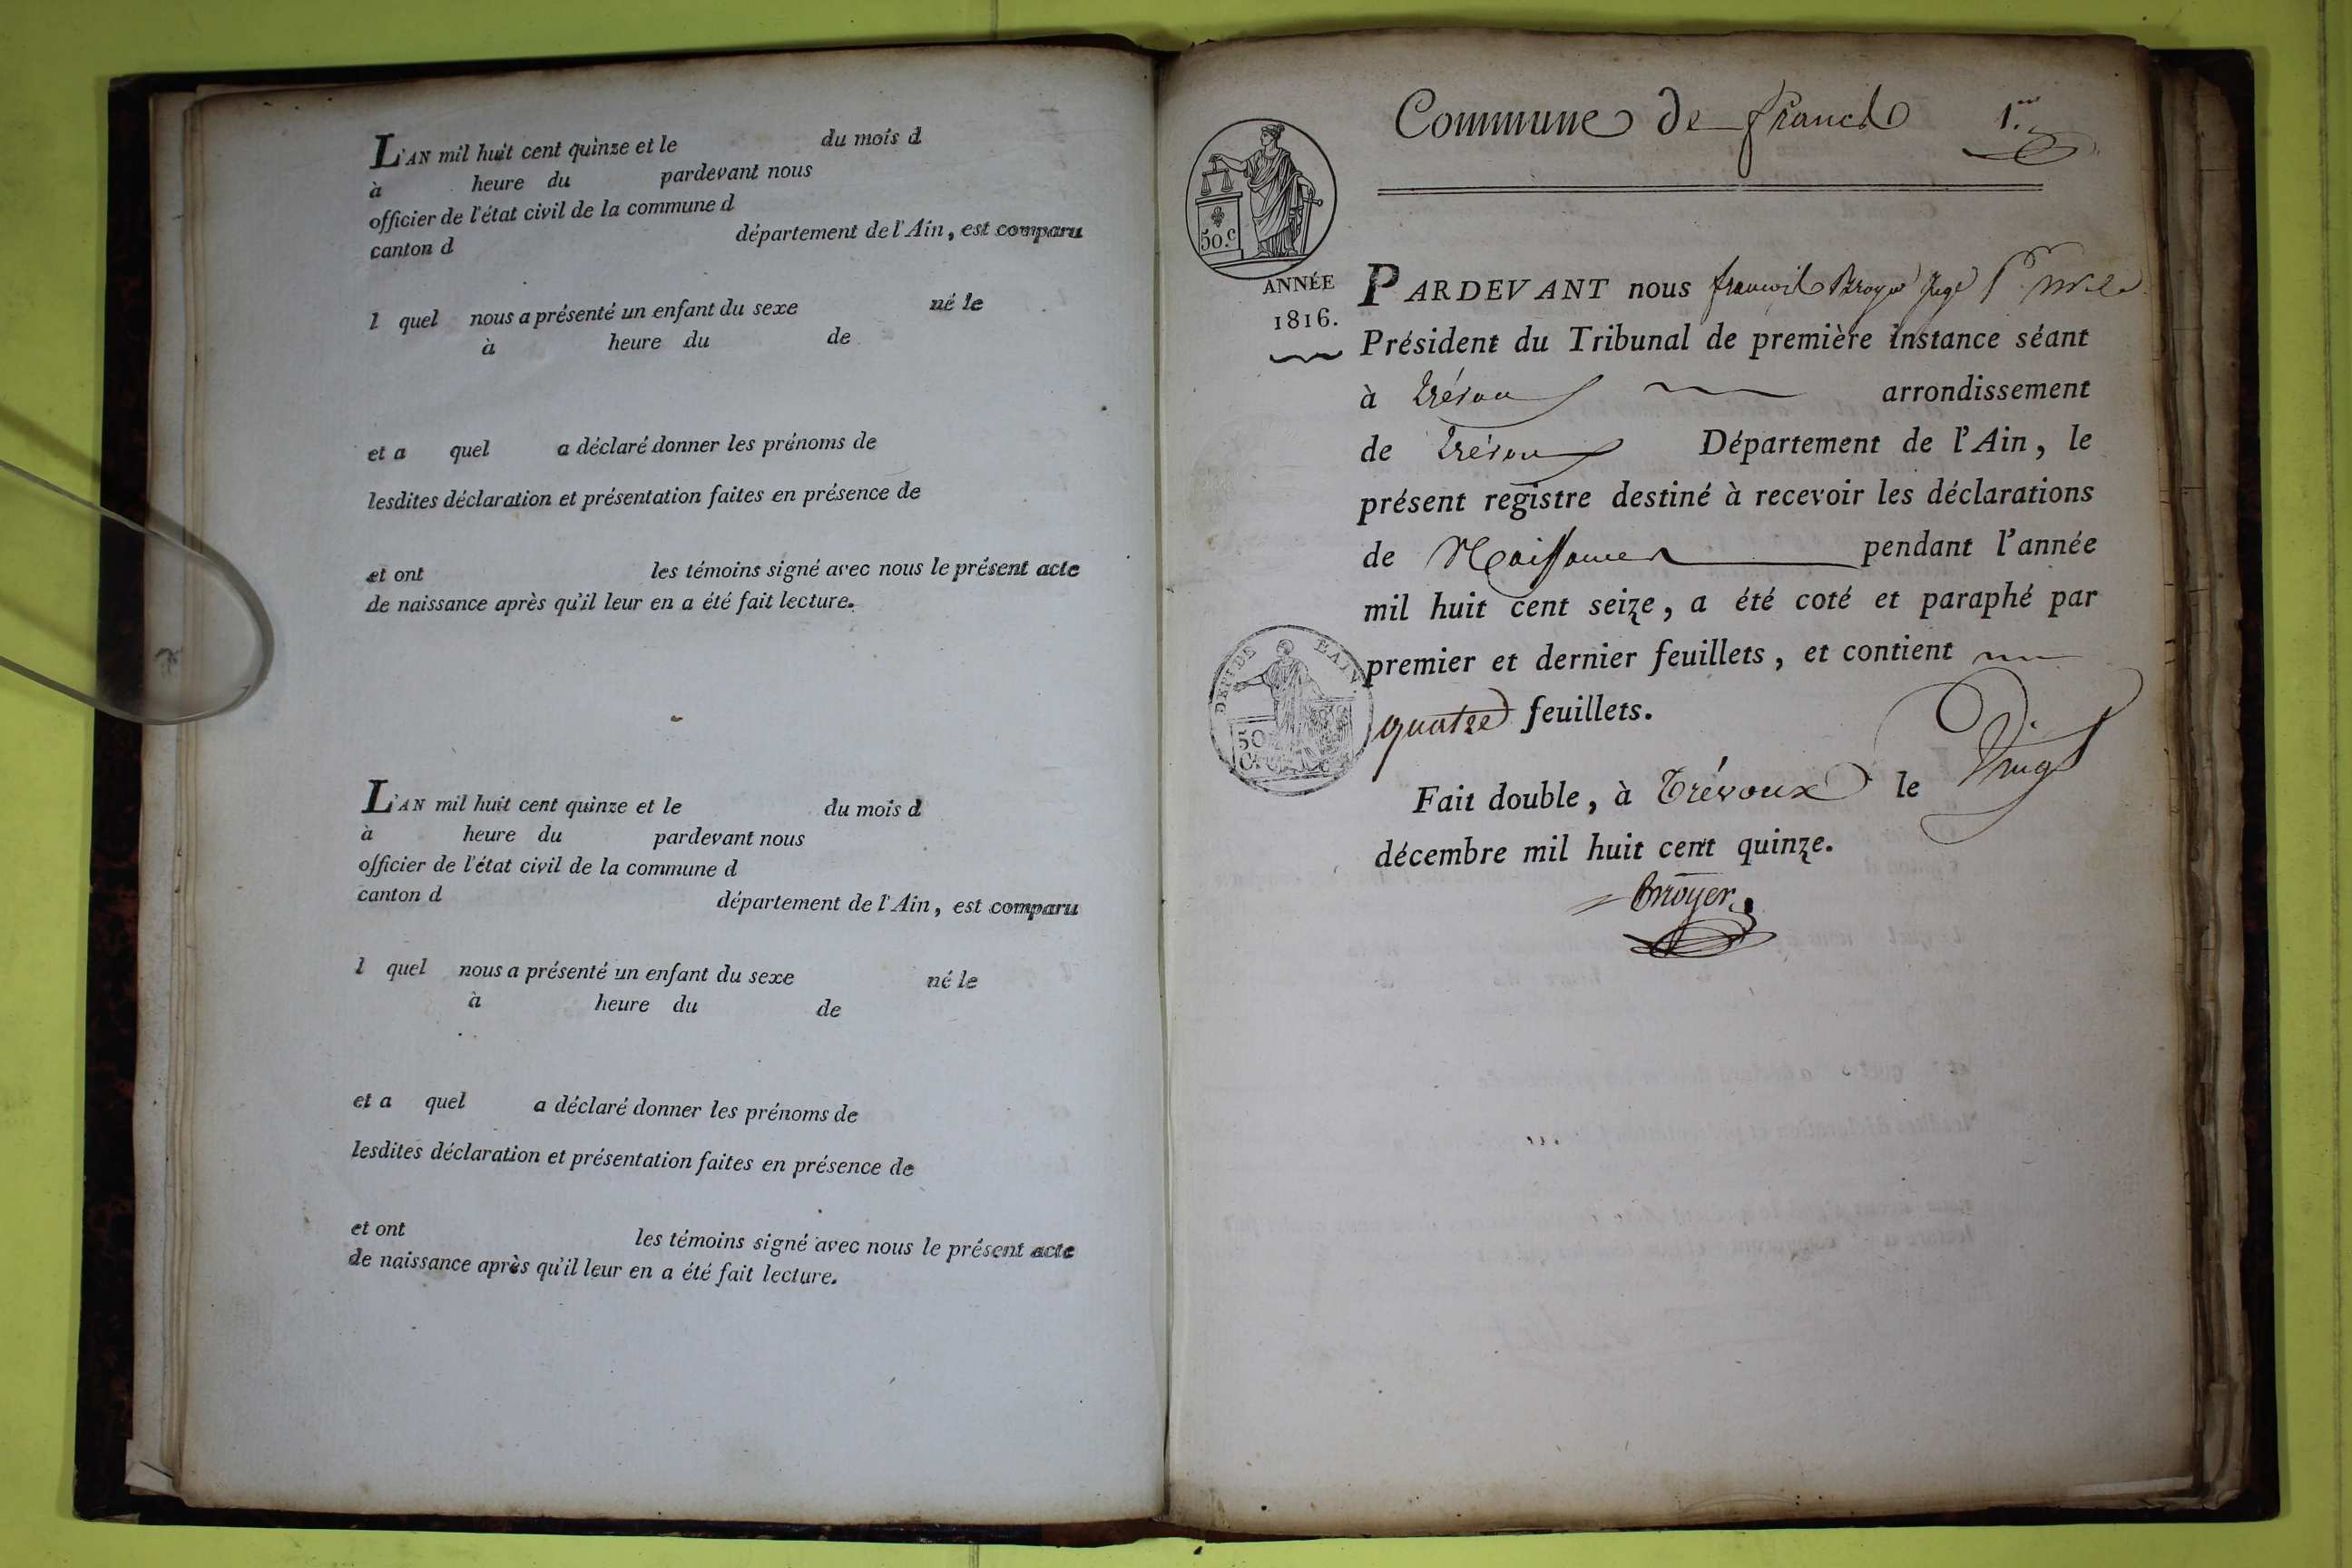 L'AN mil huit cent quinze et le du mois d
à heure du pardevant nous
officier de l'état civil de la commune d
canton d département de l'Ain, est comparu
l quel nous a présenté un enfant du sexe né le
à heure du de
et a quel a déclaré donner les prénoms de
lesdites déclaration et présentation faites en présence de
et ont les témoins signé avec nous le présent acte
de naissance après qu'il leur en a été fait lecture.
L'AN mil huit cent quinze et le du mois d
à heure du pardevant nous
officier de l'état civil de la commune d
canton d département de l'Ain, est comparu
l quel nous a présenté un enfant du sexe né le
à heure du de
et a quel a déclaré donner les prénoms de
lesdites déclaration et présentation faites en présence de
et ont les témoins signé avec nous le présent acte
de naissance après qu'il leur en a été fait lecture.
Commune de francs 1.er
50.c
ANNÉE
1816.
PARDEVANT nous françois Broyer Juge
Président du Tribunal de première instance séant
à trévoux arrondissement
de trévoux Département de l'Ain, le
présent registre destiné à recevoir les déclarations
de Naissances pendant l'année
mil huit cent seize, a été coté et paraphé par
premier et dernier feuillets, et contient
quatre feuillets.
DEPT DE L'AIN
50
Fait double, à Trévoux le Vingt
décembre mil huit cent quinze.
Broyer